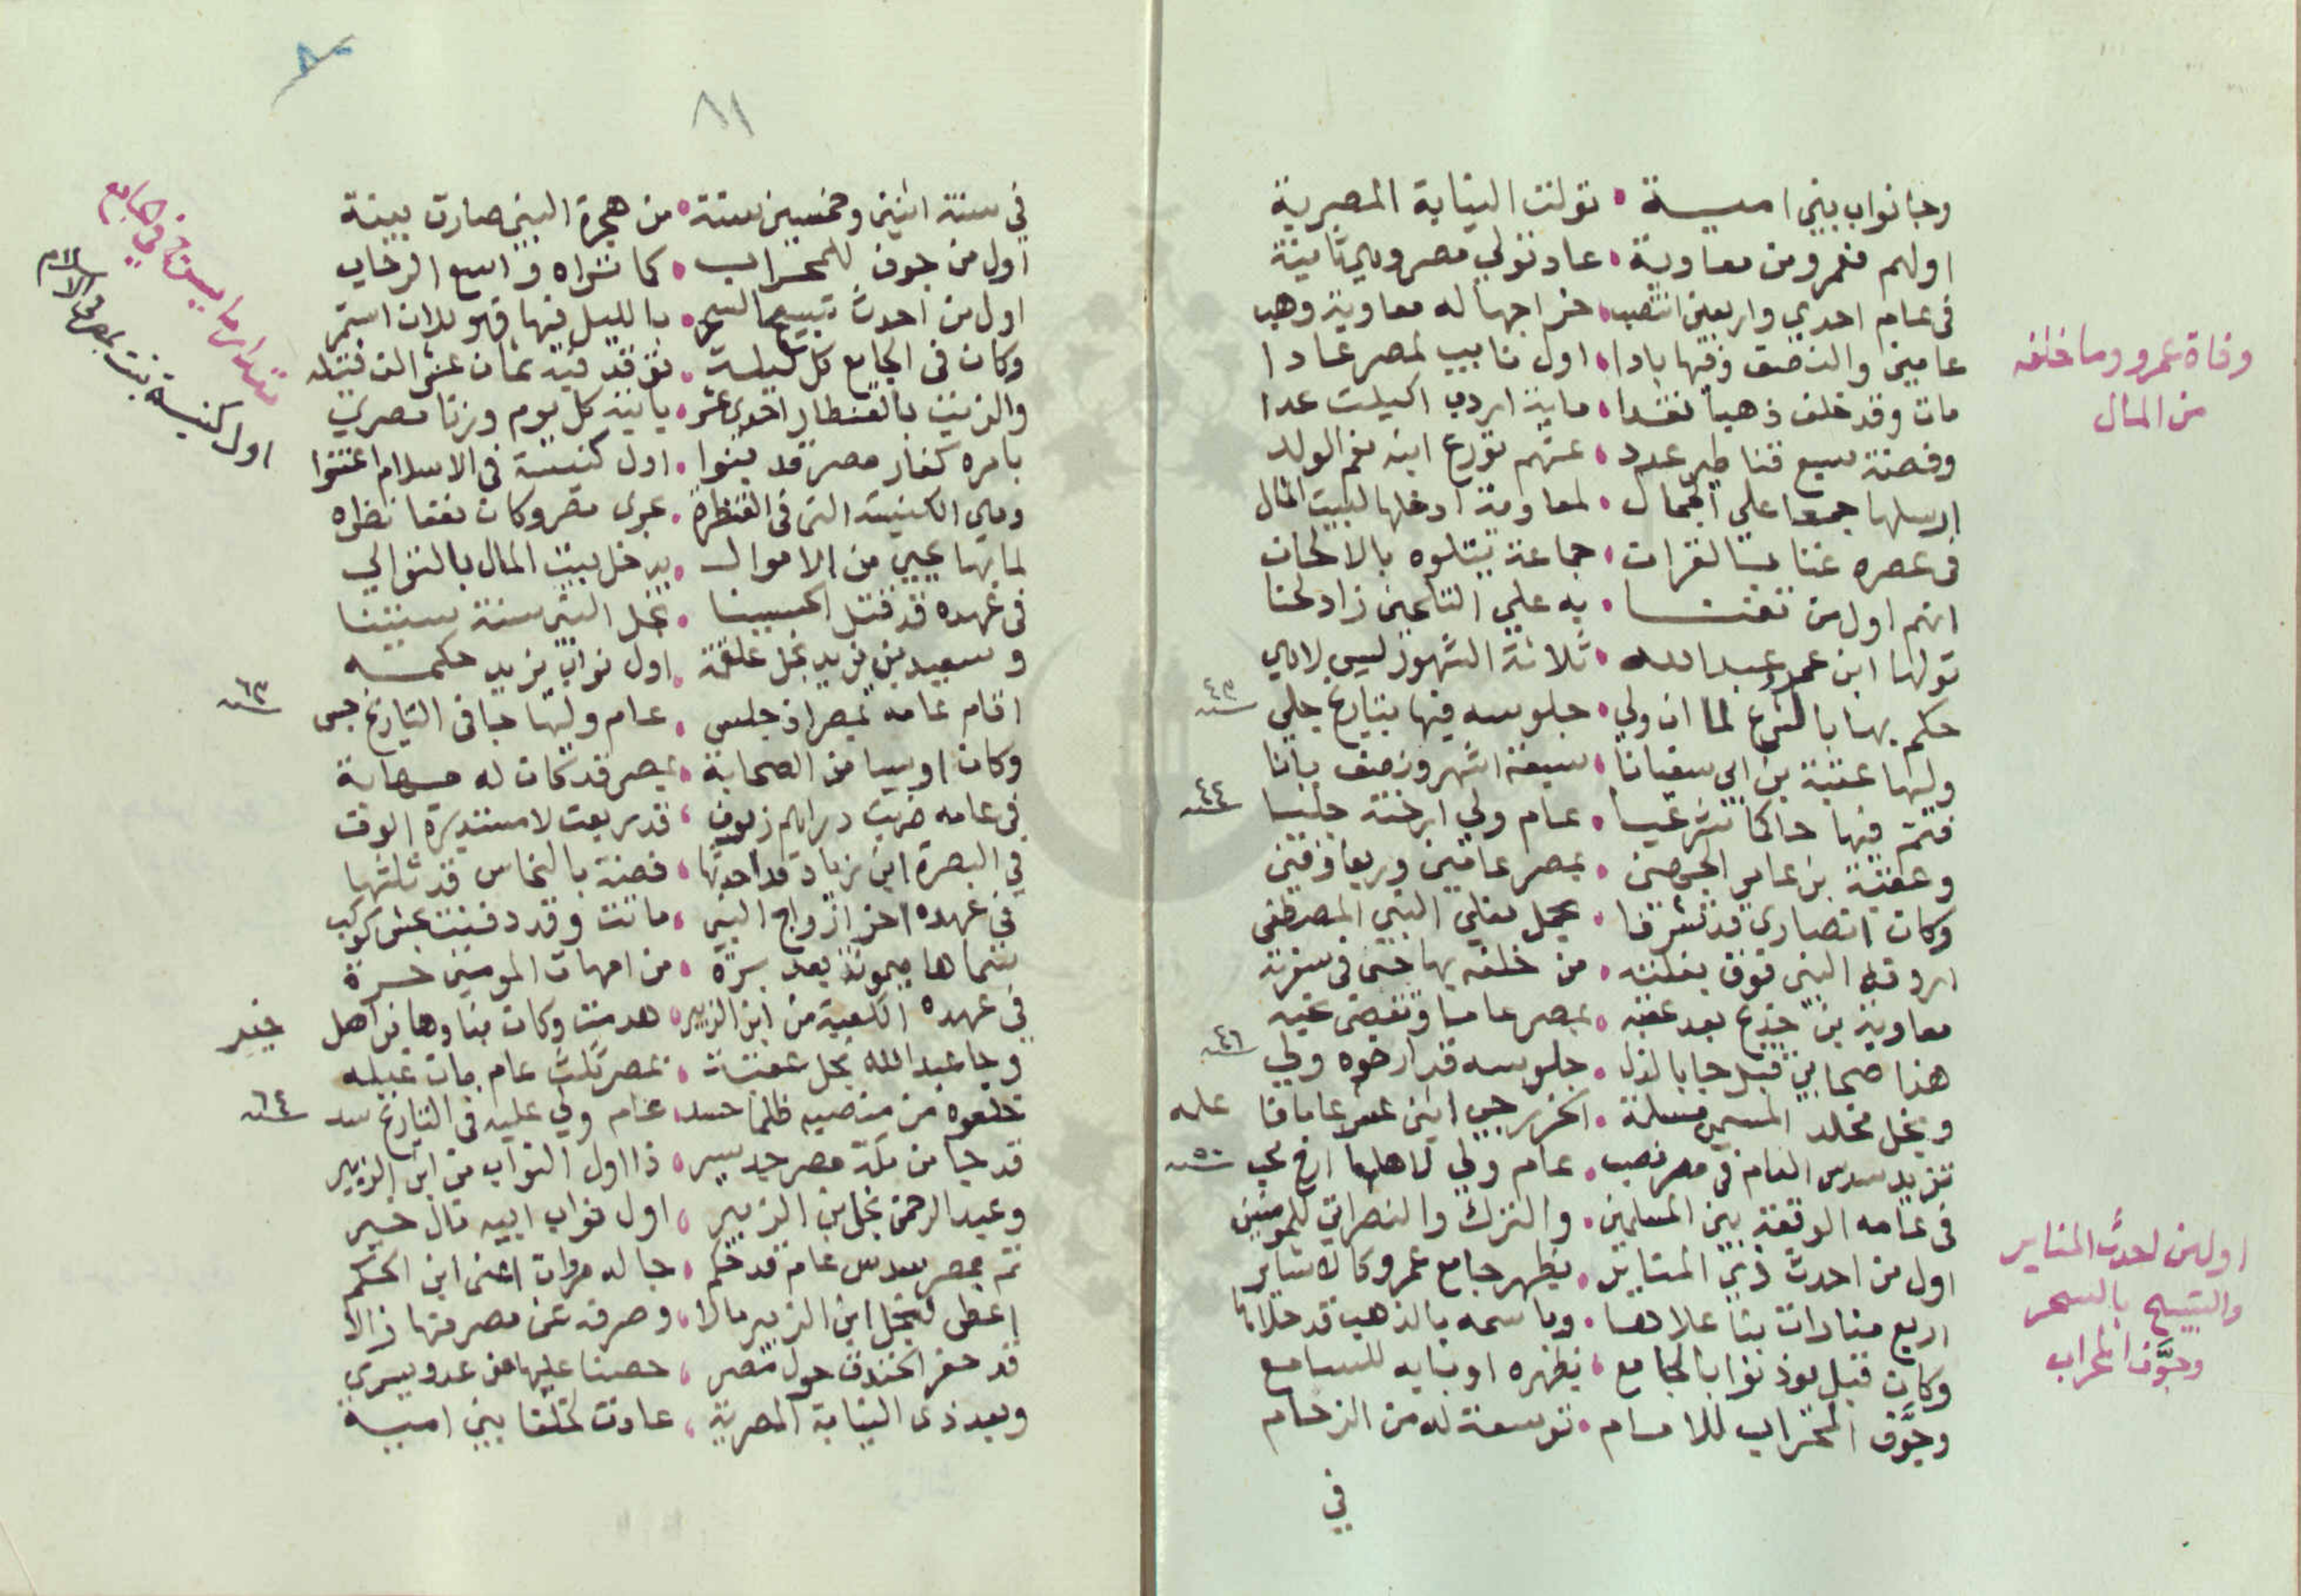 وجا نواب بني امية • تولت النيابة المصرية
اولهم فعمرو من معاوية • عاد تولي مصر وهي ثانية
في عام احدي واربعين انتصب • خراجها له معاوية وهب
عامين والنصف وفيها بادا • اول نايب لمصر عادا
مات وقد خلف ذهبا نقدا • ماية اردب اكيلت عدا
وفضة سبع قناطير عدد • عنهم تورع ابنه نعم الولد
ارسلها جمعا علي الجمال • لمعاوية ادخلها لبيت المال
في عصره غنا بنا القرات • جماعة يتلوه بالالحان
انهم اول من تغنا • به علي التلحين زاد لحنا
تولها ابن عمرو عبد الله • ثلاثة الشهور ليس لاهي
حكم بها بالشرع لما ان ولي • جلوسه فيها بتاريخ جلي
سنة ٤٣
وليها عتبة بن ابي سفيانا • سبعة اشهر ونصف بانا
فتم فيها حاكما شرعيا • عام ولي ارخته جليا
سنة ٤٤
وعقبة بن عامر الجهني • بمصر عامين وربعا وفني
وكان انصاري قد تشرفا • بحمل نعلي النبي المصطفي
اردفه النبي فوق بغلته • من خلفه بها حتى في سفرته
معاوية بن خديج بعد عقبه • بمصر عاما ونقضي غيه
هذا صحابي قبل جا بالذل • جلوسه قد ارخوه ولي
سنة ٤٦
ونجل مخلد المسمي مسلمة • الخزرجي اثنى عشر عاما فا
عله
تزيد سدس العام في مصر نصب • عام ولي لاهلها ارخ نجب
سنة ٥٠
في عامه الوقعة بين المسلمين • والترك والنصراني للمومنين
اول من احدث ذي المناير • بظهر جامع عمرو كالاشاير
اربع منارات بنا علاها • وباسمه بالذهب قد حلاها
وكان قبل يوذنوا بالجامع • بظهره او بابه للسامع
وجوّف المحراب للامام • توسعة له من الزحام
في
وفاة عمرو وما خلفه
من المال
اول من احدث المناير
والتسبيح بالسحر
وجوّف المحراب
٨١
في سنة اثنين وخمسين سنة • من هجرة النبي صارت بينة
اول من جوف للمحراب • كما تراه واسع الرحاب
اول من احدث تسبيح السحر • بالليل فيها فهو للان استمر
وكان في الجامع كل ليلة • توقد فيه ثمان عشر الف فتيله
والزيت بالقنطار احدى عشر • ياتيه كل يوم وزنا مصري
بامره كفار مصر قد بنوا • اول كنيسة في الاسلام اعتنوا
وهي الكنيسة التي في القنطرة • عوي مصر وكان نفعا نظره
لما بها يجبي من الاموال • يدخل بيت المال بالتوالي
في عهده قد قتل الحسينا • نجل النبي سنة ستينا
وسعيد بن يزيد نجل علقمة • اول نواب يزيد حكمه
اقام عامه بمصر اذ جلس • عام وليها جا في التاريخ جس
سنة ٦٣
وكان اويسا من الصحابة • بمصر قد كان له مهابة
في عامه ضربت دراهم زيوف • قد ربعت لا مستديرة الوقف
في البصرة ابن زياد قد احدثها • فضة بالنحاس قد ثلثها
في عهده اخر ازواج النبي • ماتت وقد دفنت بمش كوكب
سماها ميمونة بعد برة • من امهات المومنين حرة
في عهده الكعبة من ابن الزبير • هدمت وكان بناوها من اهل
خير
وجا عبد الله نجل عفان • بمصر ثلث عام بان عيله
خلعوه من منصبه ظلما حسد • عام ولي عليه في التاريخ سد
سنة ٦٤
قد جا من مكة مصر جد سير • ذا اول النواب من ابن الزبير
وعبد الرحمن نجل بن الزبير • اول نواب ابيه نال خير
تم بمصر سدس عام قد حكم • جا له مروان اعني ابن الحكم
اعطى لنجل ابن الزبير مالا • وصرفه عن مصر منها زالا
قد حفر الخندق حول مصر • حصنا عليها من عدو يسري
وبعد ذي النيابة المصرية • عادت لخلفا بني امية
مقدار ما يسرج في جامع
اول كنيسة بنيت بمصر في الاسلام